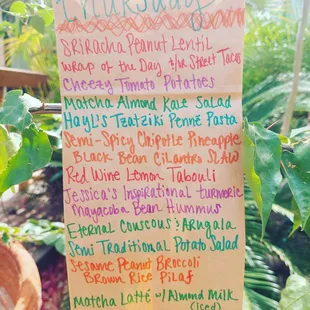 Thursday
Sriracha Peanut Lentil
Wrap of the Day &/or Street Tacos
Cheezy Tomato Potatoes
Matcha Almond Kale Salad
Hayl's Tzatziki Penne Pasta
Semi-Spicy Chipotle Pineapple
Black Bean Cilantro Slaw
Red Wine Lemon Tabouli
Jessica's Inspirational turmeric
Mayacoba Bean Hummus
Eternal Couscous & Arugala
Semi Traditional Potato Salad
Sesame Peanut Broccoli
Brown Rice Pilaf
Matcha Latté w/ Almond Milk
(iced)